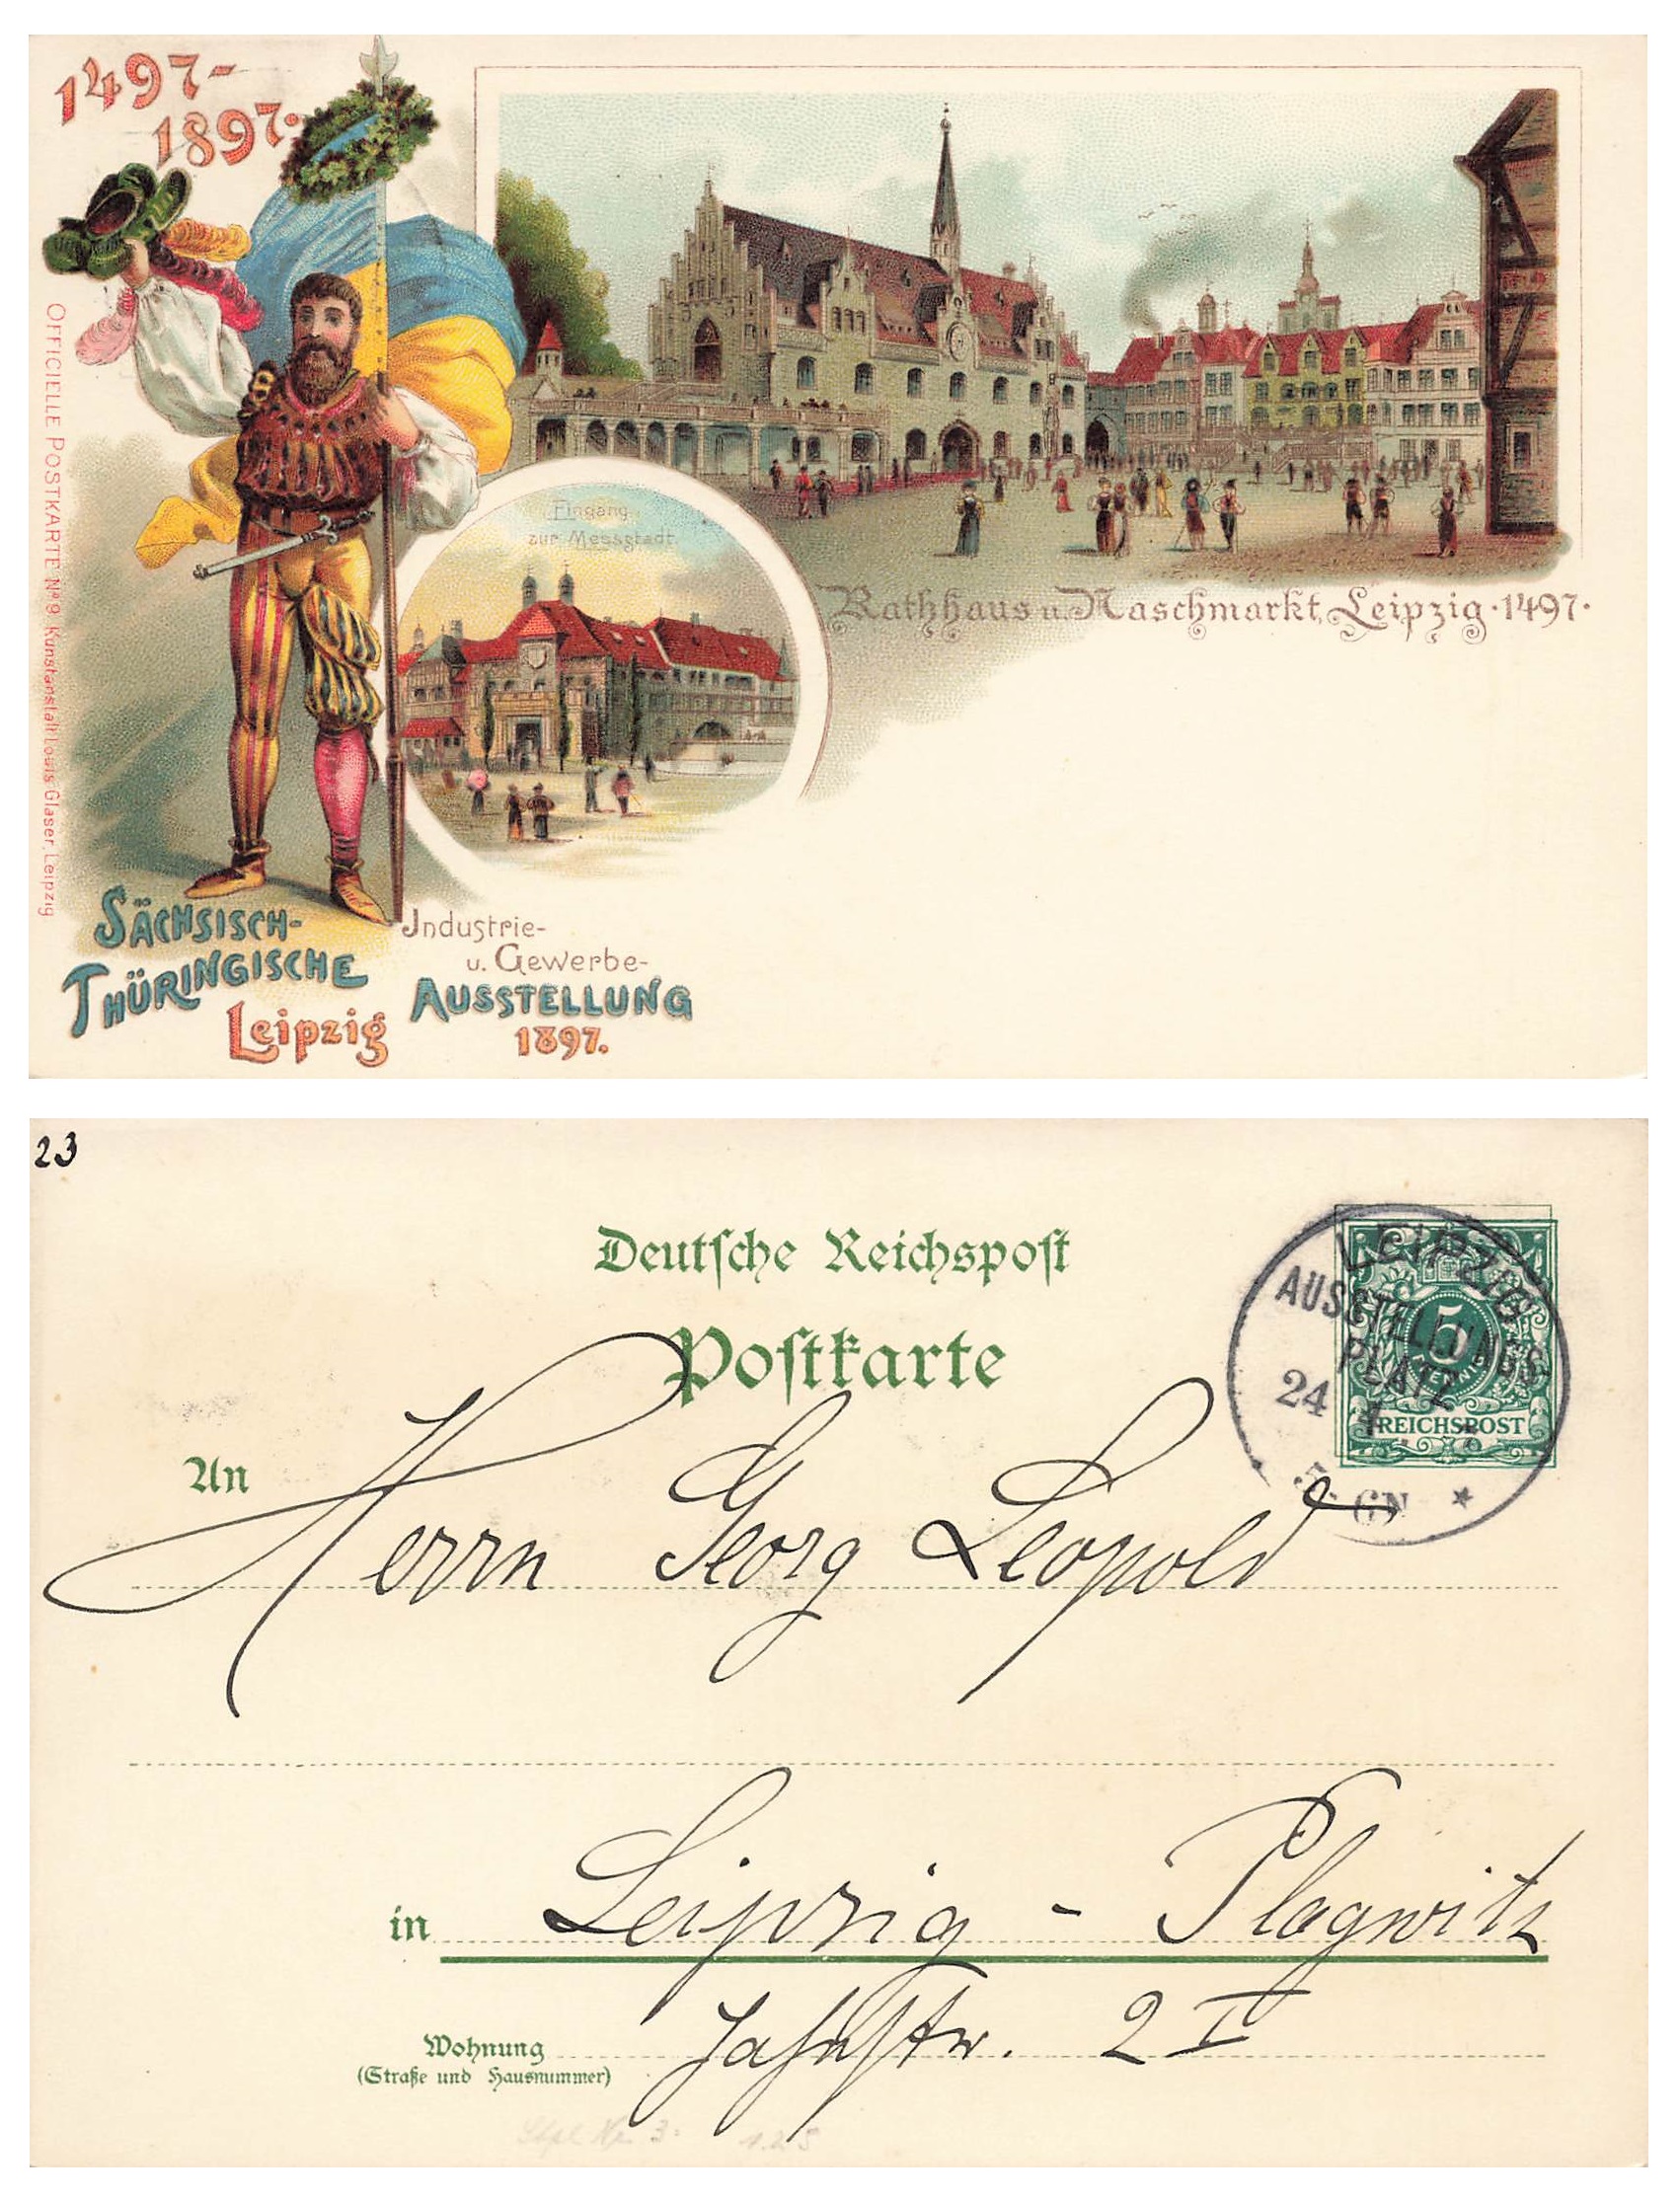 1497-
1897.
OFFICIELLE POSTKARTE No 9 Kunstanstalt Louis Glaser, Leipzig
Eingang
zur Messstadt.
Rathhaus u. Naschmarkt, Leipzig · 1497 ·
SÄCHSISCH-
THÜRINGISCHE
Leipzig
Industrie-
u. Gewerbe-
AUSSTELLUNG
1897.
23
Deutsche Reichspost
Postkarte
LEIPZIG
AUSSTELLUNGS
PLATZ
24
5
PFENNIG
REICHSPOST
An
Herrn Georg Leopold
in Leipzig - Plagwitz
Wohnung Jahnstr. 2 I
(Straße und Hausnummer)